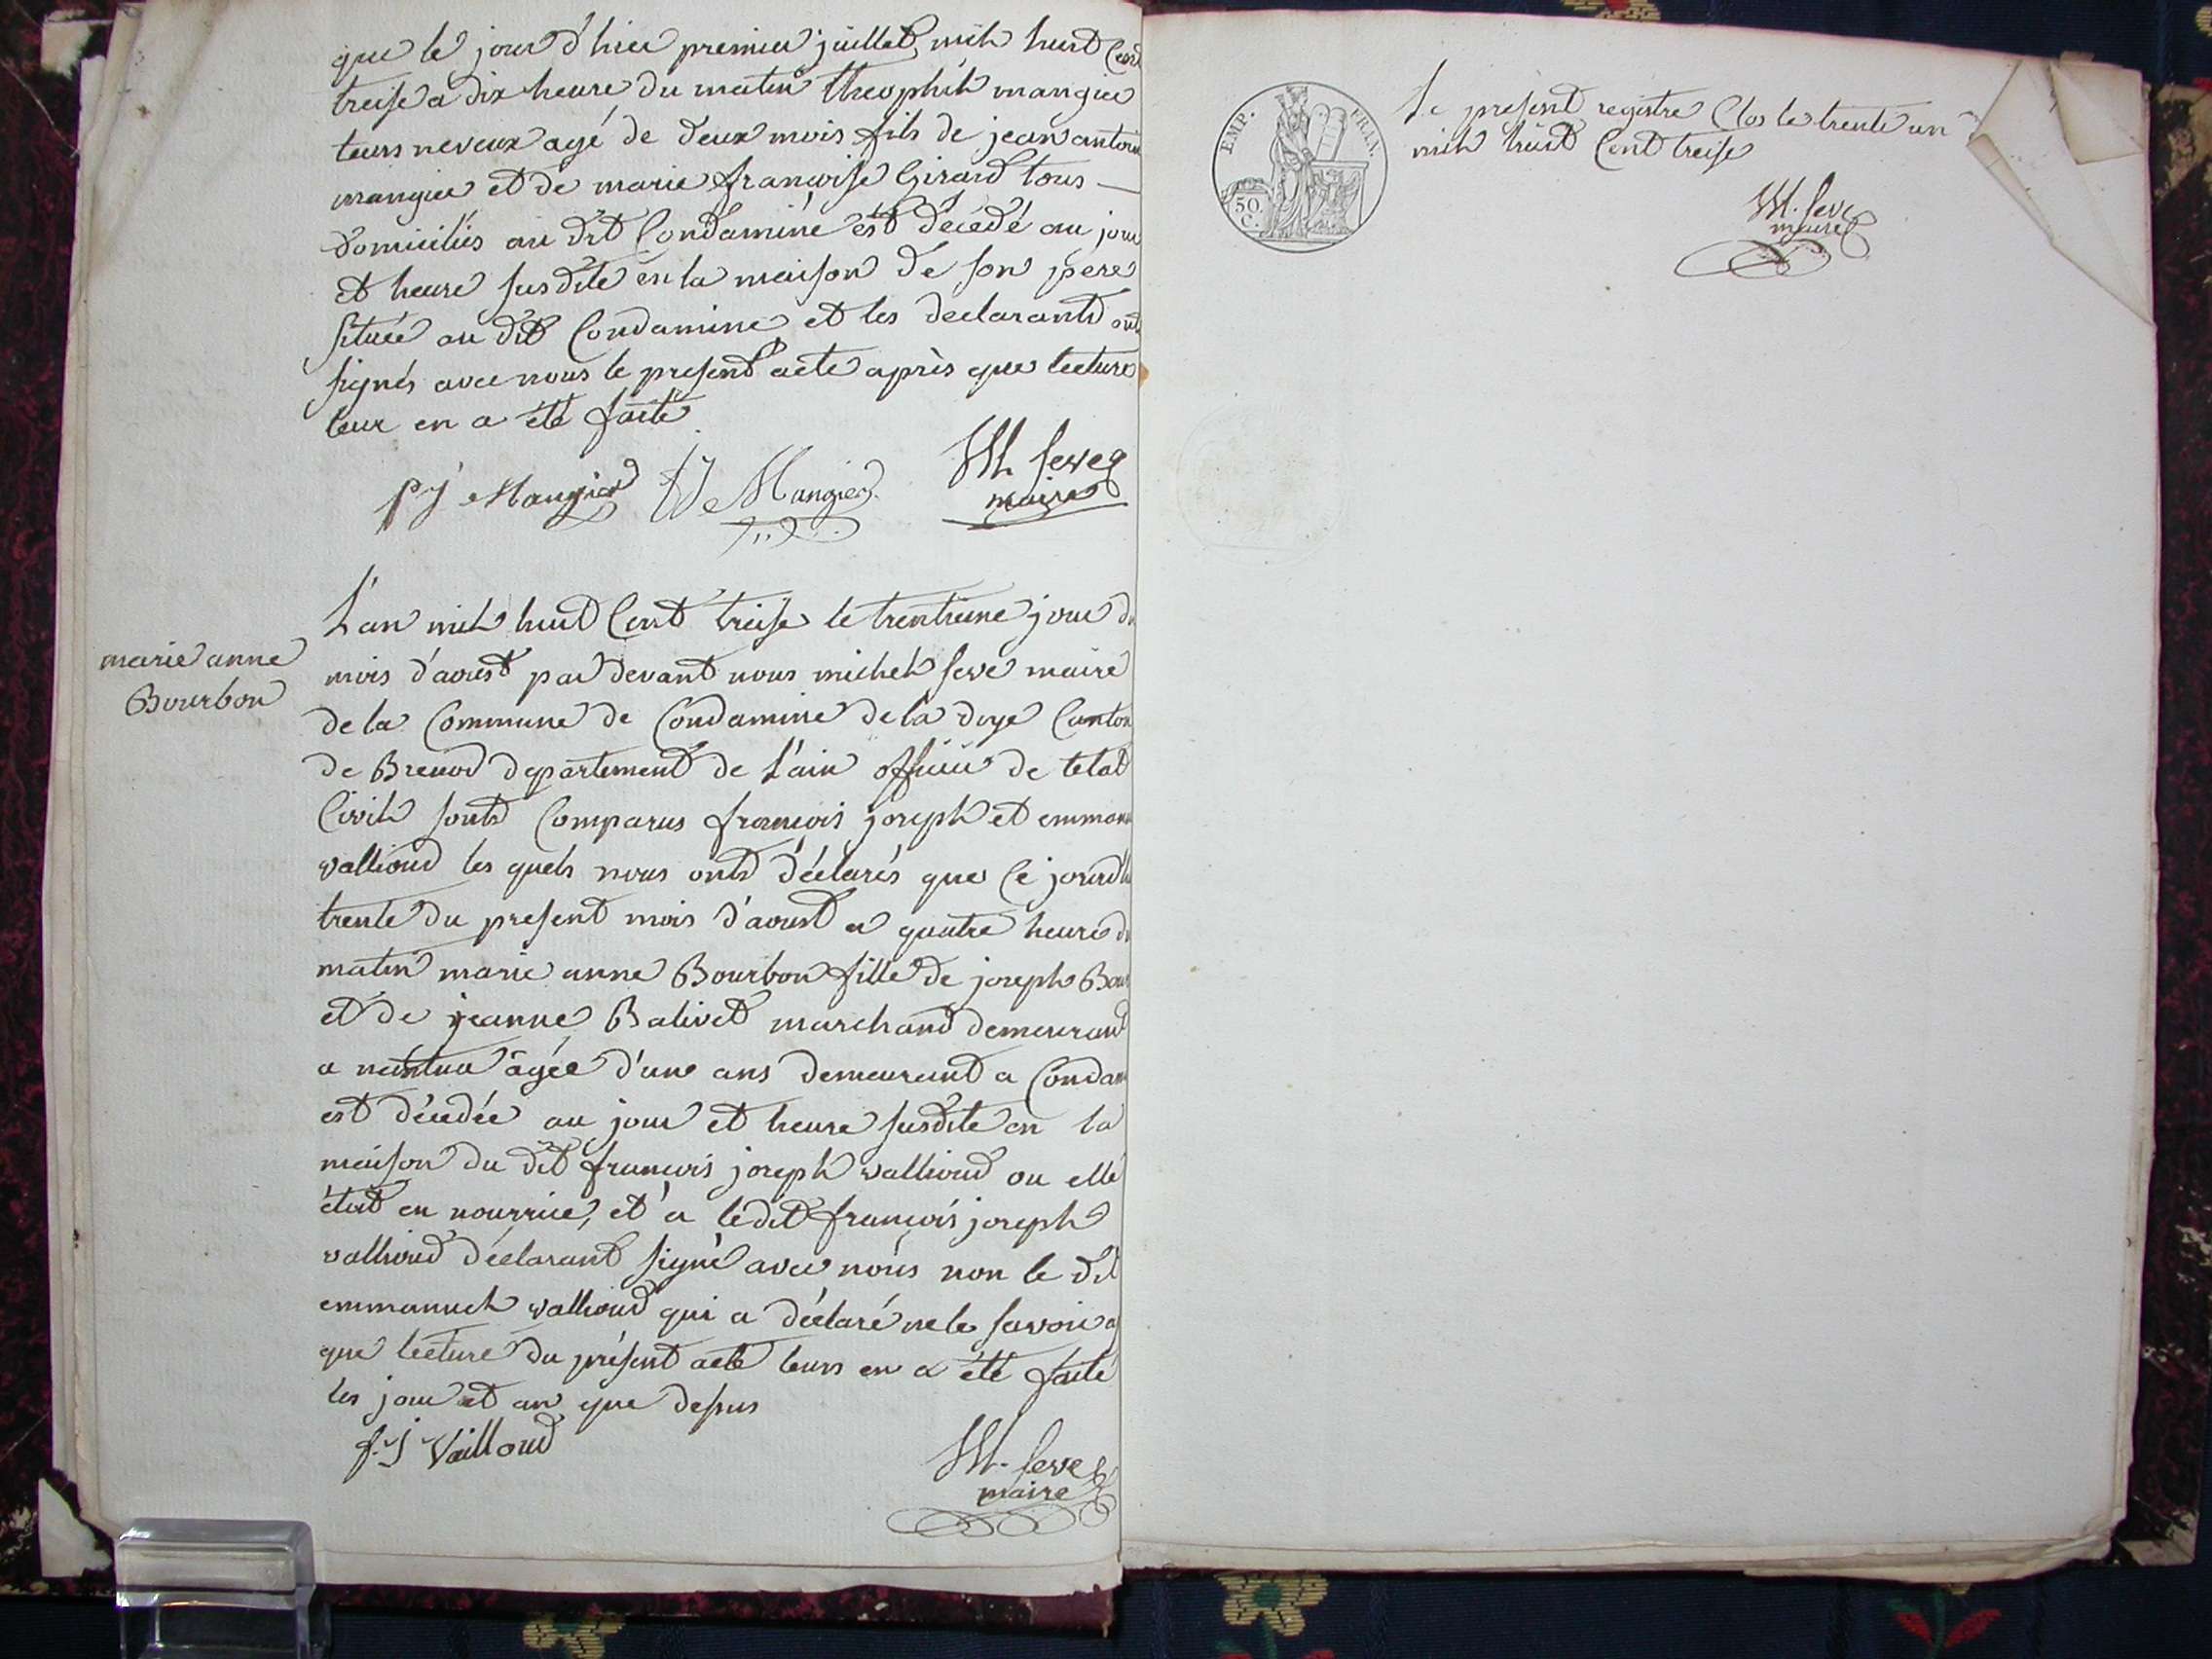 que le jour d'hier premier juillet mil huit Cent
treise a dix heure du matin theophile mangier
leurs neveux agé de deux mois fils de jean antoine
mangier et de marie françoise Girard tous
domiciliés au dit Condamine est décédé au jour
et heure susdite en la maison de son pere
située au dit Condamine et les declarants ont
signés avec nous le present acte après que lecture
leur en a été faite
pj Mangier Mangier M seve
maire
marie anne
Bourbon
L'an mil huit Cent treise le trentieme jour du
mois d'aoust par devant nous michel seve maire
de la Commune de Condamine de la doye Canton
de Brenod departement de L'ain officier de letat
Civil sonts Comparus françois joseph et emman
vallioud les quels nous onts déclarés que Ce jourd'hu
trente du present mois d'aoust a quatre heure du
matin marie anne Bourbon fille de joseph Bour
et de jeanne Balivet marchand demeurant
a nantua âgée d'une ans demeurant a Condam
est décedée au jour et heure susdite en la
maison du dit françois joseph vallioud ou elle
étoit en nourrice, et a ledit françois joseph
vallioud déclarant signé avec nous non le dit
emmanuel vallioud qui a déclaré ne le savoir a
que lecture du présent acte leurs en a été faite
les jour et an que desus
f. j Vailloud
M. seve
maire
EMP. FRAN.
50.
C.
Le present registre Clos le trente un
mil huit Cent treise
M. seve
maire